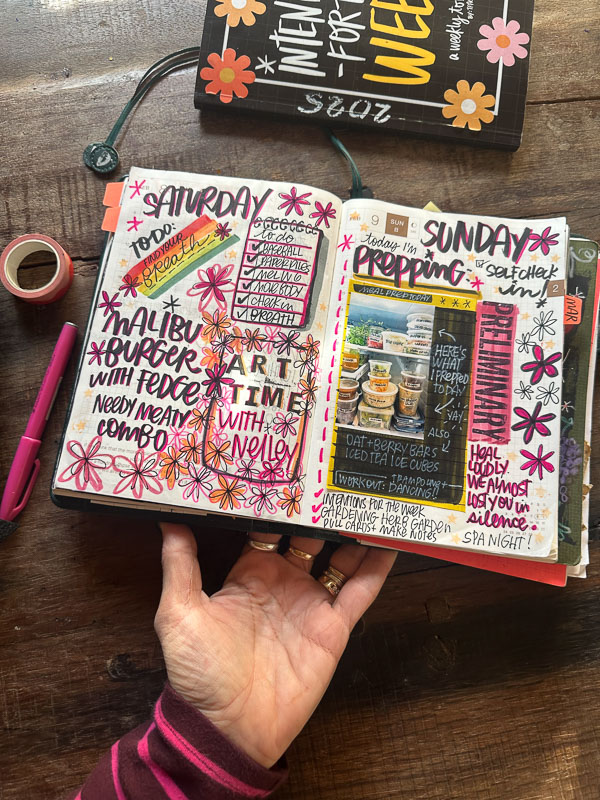 INTEN
-FOR-
WEE
a weekly to
2025
SATURDAY
TO DO:
FIND YOUR
Breath
to do
BASEBALL
MOE BODY
check in
BREATH
MALIBU
BURGER
WITH FEDGE
NEEDY MEATY
COMBO
ART
TIME
WITH
Nelley
9
SUN
B
SUNDAY
today I'm
PREPPING:
self check
in!
2
MAR
MEAL PREP TODAY
HERE'S
WHAT
I PREPPED
TODAY
YAY!
ALSO
OAT+BERRY BARS
ICED TEA ICE CUBES
WORKOUT: TRAMPOLINE+
DANCING!!
PRELIMINARY
HEAL
LOUDLY.
WE ALMOST
LOST YOU IN
silence.
INTENTIONS FOR THE WEEK
GARDENING HERB GARDEN
PULL CARDS+ MAKE NOTES
SPA NIGHT!